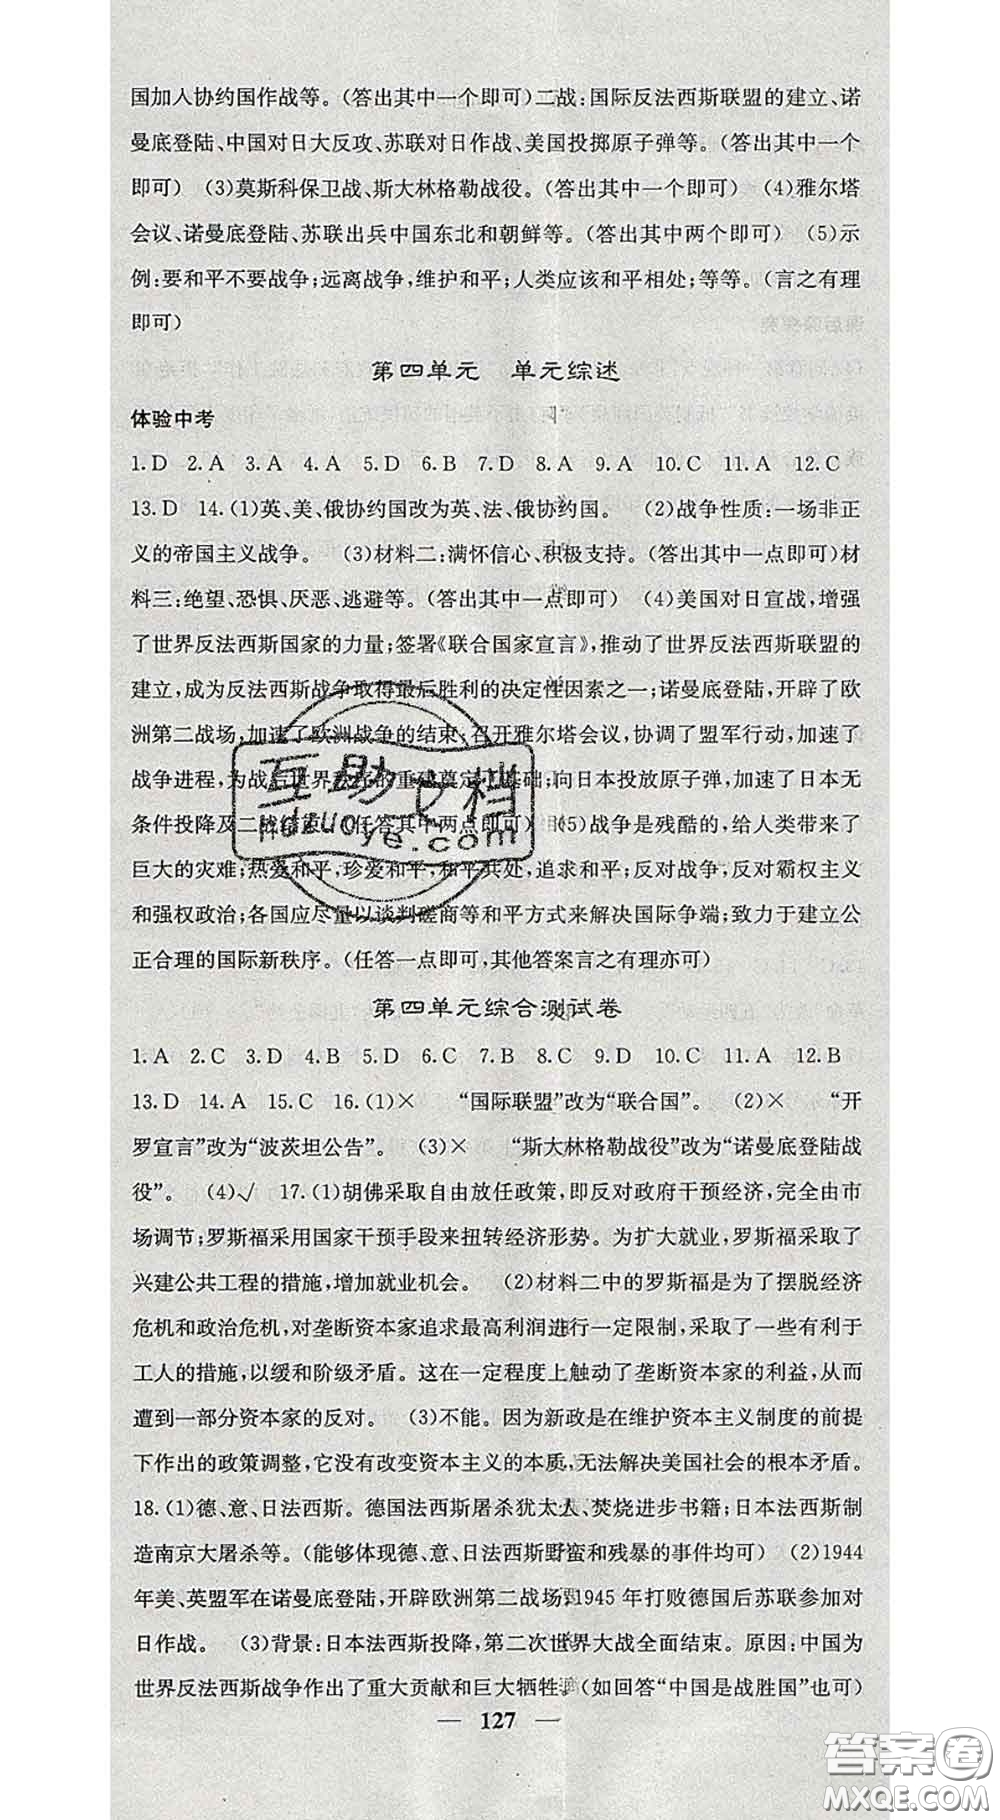 国加入协约国作战等。(答出其中一个即可)二战:国际反法西斯联盟的建立、诺
曼底登陆、中国对日大反攻、苏联对日作战、美国投掷原子弹等。(答出其中一个
即可) (3)莫斯科保卫战、斯大林格勒战役。(答出其中一个即可) (4)雅尔塔
会议、诺曼底登陆、苏联出兵中国东北和朝鲜等。(答出其中两个即可) (5)示
例:要和平不要战争;远离战争,维护和平;人类应该和平相处;等等。(言之有理
即可)
第四单元 单元综述
体验中考
1.D 2.A 3.A 4.A 5.D 6.B 7.D 8.A 9.A 10.C 11.A 12.C
13.D 14.(1)英、美、俄协约国改为英、法、俄协约国。 (2)战争性质:一场非正
义的帝国主义战争。 (3)材料二:满怀信心、积极支持。(答出其中一点即可)材
料三:绝望、恐惧、厌恶、逃避等。(答出其中一点即可) (4)美国对日宣战,增强
了世界反法西斯国家的力量;签署《联合国家宣言》,推动了世界反法西斯联盟的
建立,成为反法西斯战争取得最后胜利的决定性因素之一;诺曼底登陆,开辟了欧
洲第二战场,加速了欧洲战争的结束;召开雅尔塔会议,协调了盟军行动,加速了
战争进程,为战后世界秩序的重建奠定了基础;向日本投放原子弹,加速了日本无
条件投降及二战结束。(任答其中两点即可) (5)战争是残酷的,给人类带来了
巨大的灾难;热爱和平,珍爱和平,和平共处,追求和平;反对战争,反对霸权主义
和强权政治;各国应尽量以谈判磋商等和平方式来解决国际争端;致力于建立公
正合理的国际新秩序。(任答一点即可,其他答案言之有理亦可)
第四单元综合测试卷
1.A 2.C 3.D 4.B 5.D 6.C 7.B 8.C 9.D 10.C 11.A 12.B
13.D 14.A 15.C 16.(1)× “国际联盟”改为“联合国”。 (2)× “开
罗宣言”改为“波茨坦公告”。 (3)× “斯大林格勒战役”改为“诺曼底登陆战
役”。 (4)√ 17.(1)胡佛采取自由放任政策,即反对政府干预经济,完全由市
场调节;罗斯福采用国家干预手段来扭转经济形势。为扩大就业,罗斯福采取了
兴建公共工程的措施,增加就业机会。 (2)材料二中的罗斯福是为了摆脱经济
危机和政治危机,对垄断资本家追求最高利润进行一定限制,采取了一些有利于
工人的措施,以缓和阶级矛盾。这在一定程度上触动了垄断资本家的利益,从而
遭到一部分资本家的反对。 (3)不能。因为新政是在维护资本主义制度的前提
下作出的政策调整,它没有改变资本主义的本质,无法解决美国社会的根本矛盾。
18.(1)德、意、日法西斯。德国法西斯屠杀犹太人、焚烧进步书籍;日本法西斯制
造南京大屠杀等。(能够体现德、意、日法西斯野蛮和残暴的事件均可) (2)1944
年美、英盟军在诺曼底登陆,开辟欧洲第二战场;1945年打败德国后苏联参加对
日作战。 (3)背景:日本法西斯投降,第二次世界大战全面结束。原因:中国为
世界反法西斯战争作出了重大贡献和巨大牺牲。(如回答“中国是战胜国”也可)
— 127 —
互助文档
hdzuoye.com
答案圈
MXQE.COM